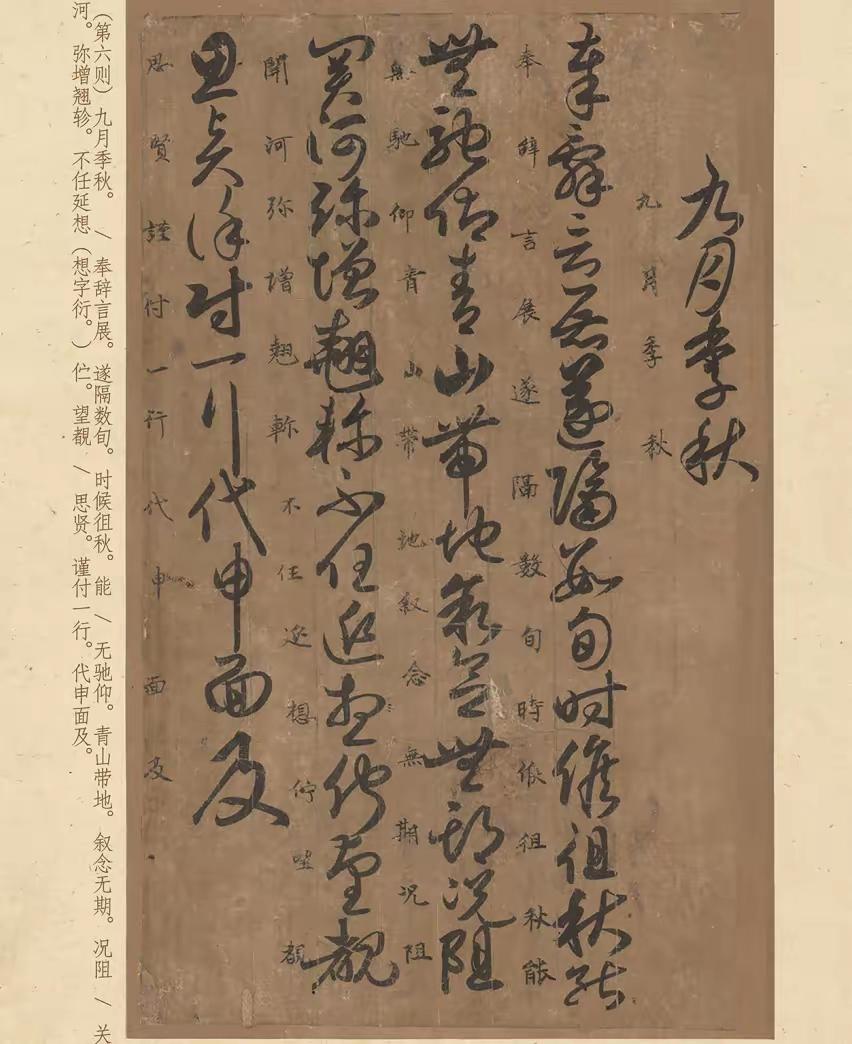 九月季秋
九月季秋
奉辞言展遂隔数旬时候徂秋能
奉辭言展遂隔數旬時候徂秋能
無馳仰青山帶地叙念無期況阻
無馳仰青山帶地叙念無期況阻
關河弥增翹軫不任延想佇望覩
関河弥增翹軫不任延想佇望覩
思賢謹付一行代申面及
思賢謹付一行代申面及
（第六则）九月季秋。／奉辞言展。遂隔数旬。时候徂秋。能／无驰仰。青山带地。叙念无期。况阻／关
河。弥增翘轸。不任延想（想字衍。）伫。望覩／思贤。谨付一行。代申面及。